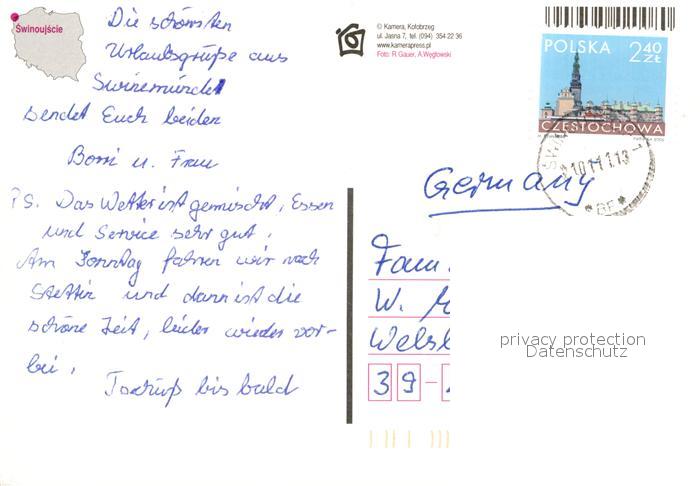 Świnoujście
Die schönsten
Urlaubsgrüße aus
Swinemünde
sendet Euch beiden
u. Frau
PS. Das Wetter ist gemischt, Essen
und Service sehr gut.
Am Sonntag fahren wir nach
Stettin und dann ist die
schöne Zeit, leider wieder vor-
bei.
bis bald
© Kamera, Kołobrzeg
ul. Jasna 7, tel. (094) 354 22 36
www.kamerapress.pl
Foto: R.Gauer, A.Węgłowski
POLSKA 2,40 ZŁ
CZĘSTOCHOWA
Germany
Fam.
W.
39-
privacy protection
Datenschutz